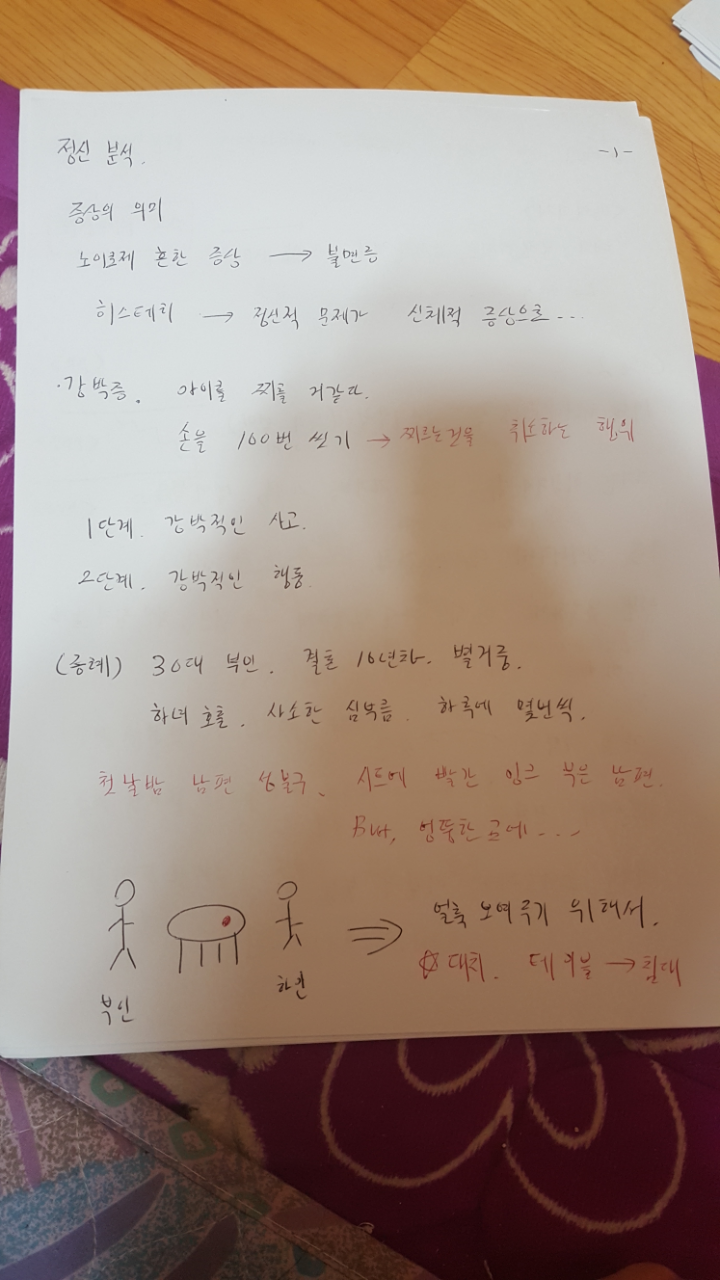 정신 분석.
-1-
증상의 의미
노이로제 흔한 증상 → 불면증
히스테리 → 정신적 문제가 신체적 증상으로...
·강박증. 아이를 찌를 거같다.
손을 100번 씻기 → 찌르는것을 취소하는 행위
1단계. 강박적인 사고.
2단계. 강박적인 행동
(증례) 30대 부인. 결혼 10년차. 별거중.
하녀 호출. 사소한 심부름. 하루에 몇번씩.
첫날밤 남편 성불구. 시트에 빨간 잉크 부은 남편.
But, 엉뚱한곳에...
얼룩 보여주기 위해서.
☆대치. 테이블 → 침대
부인
하인